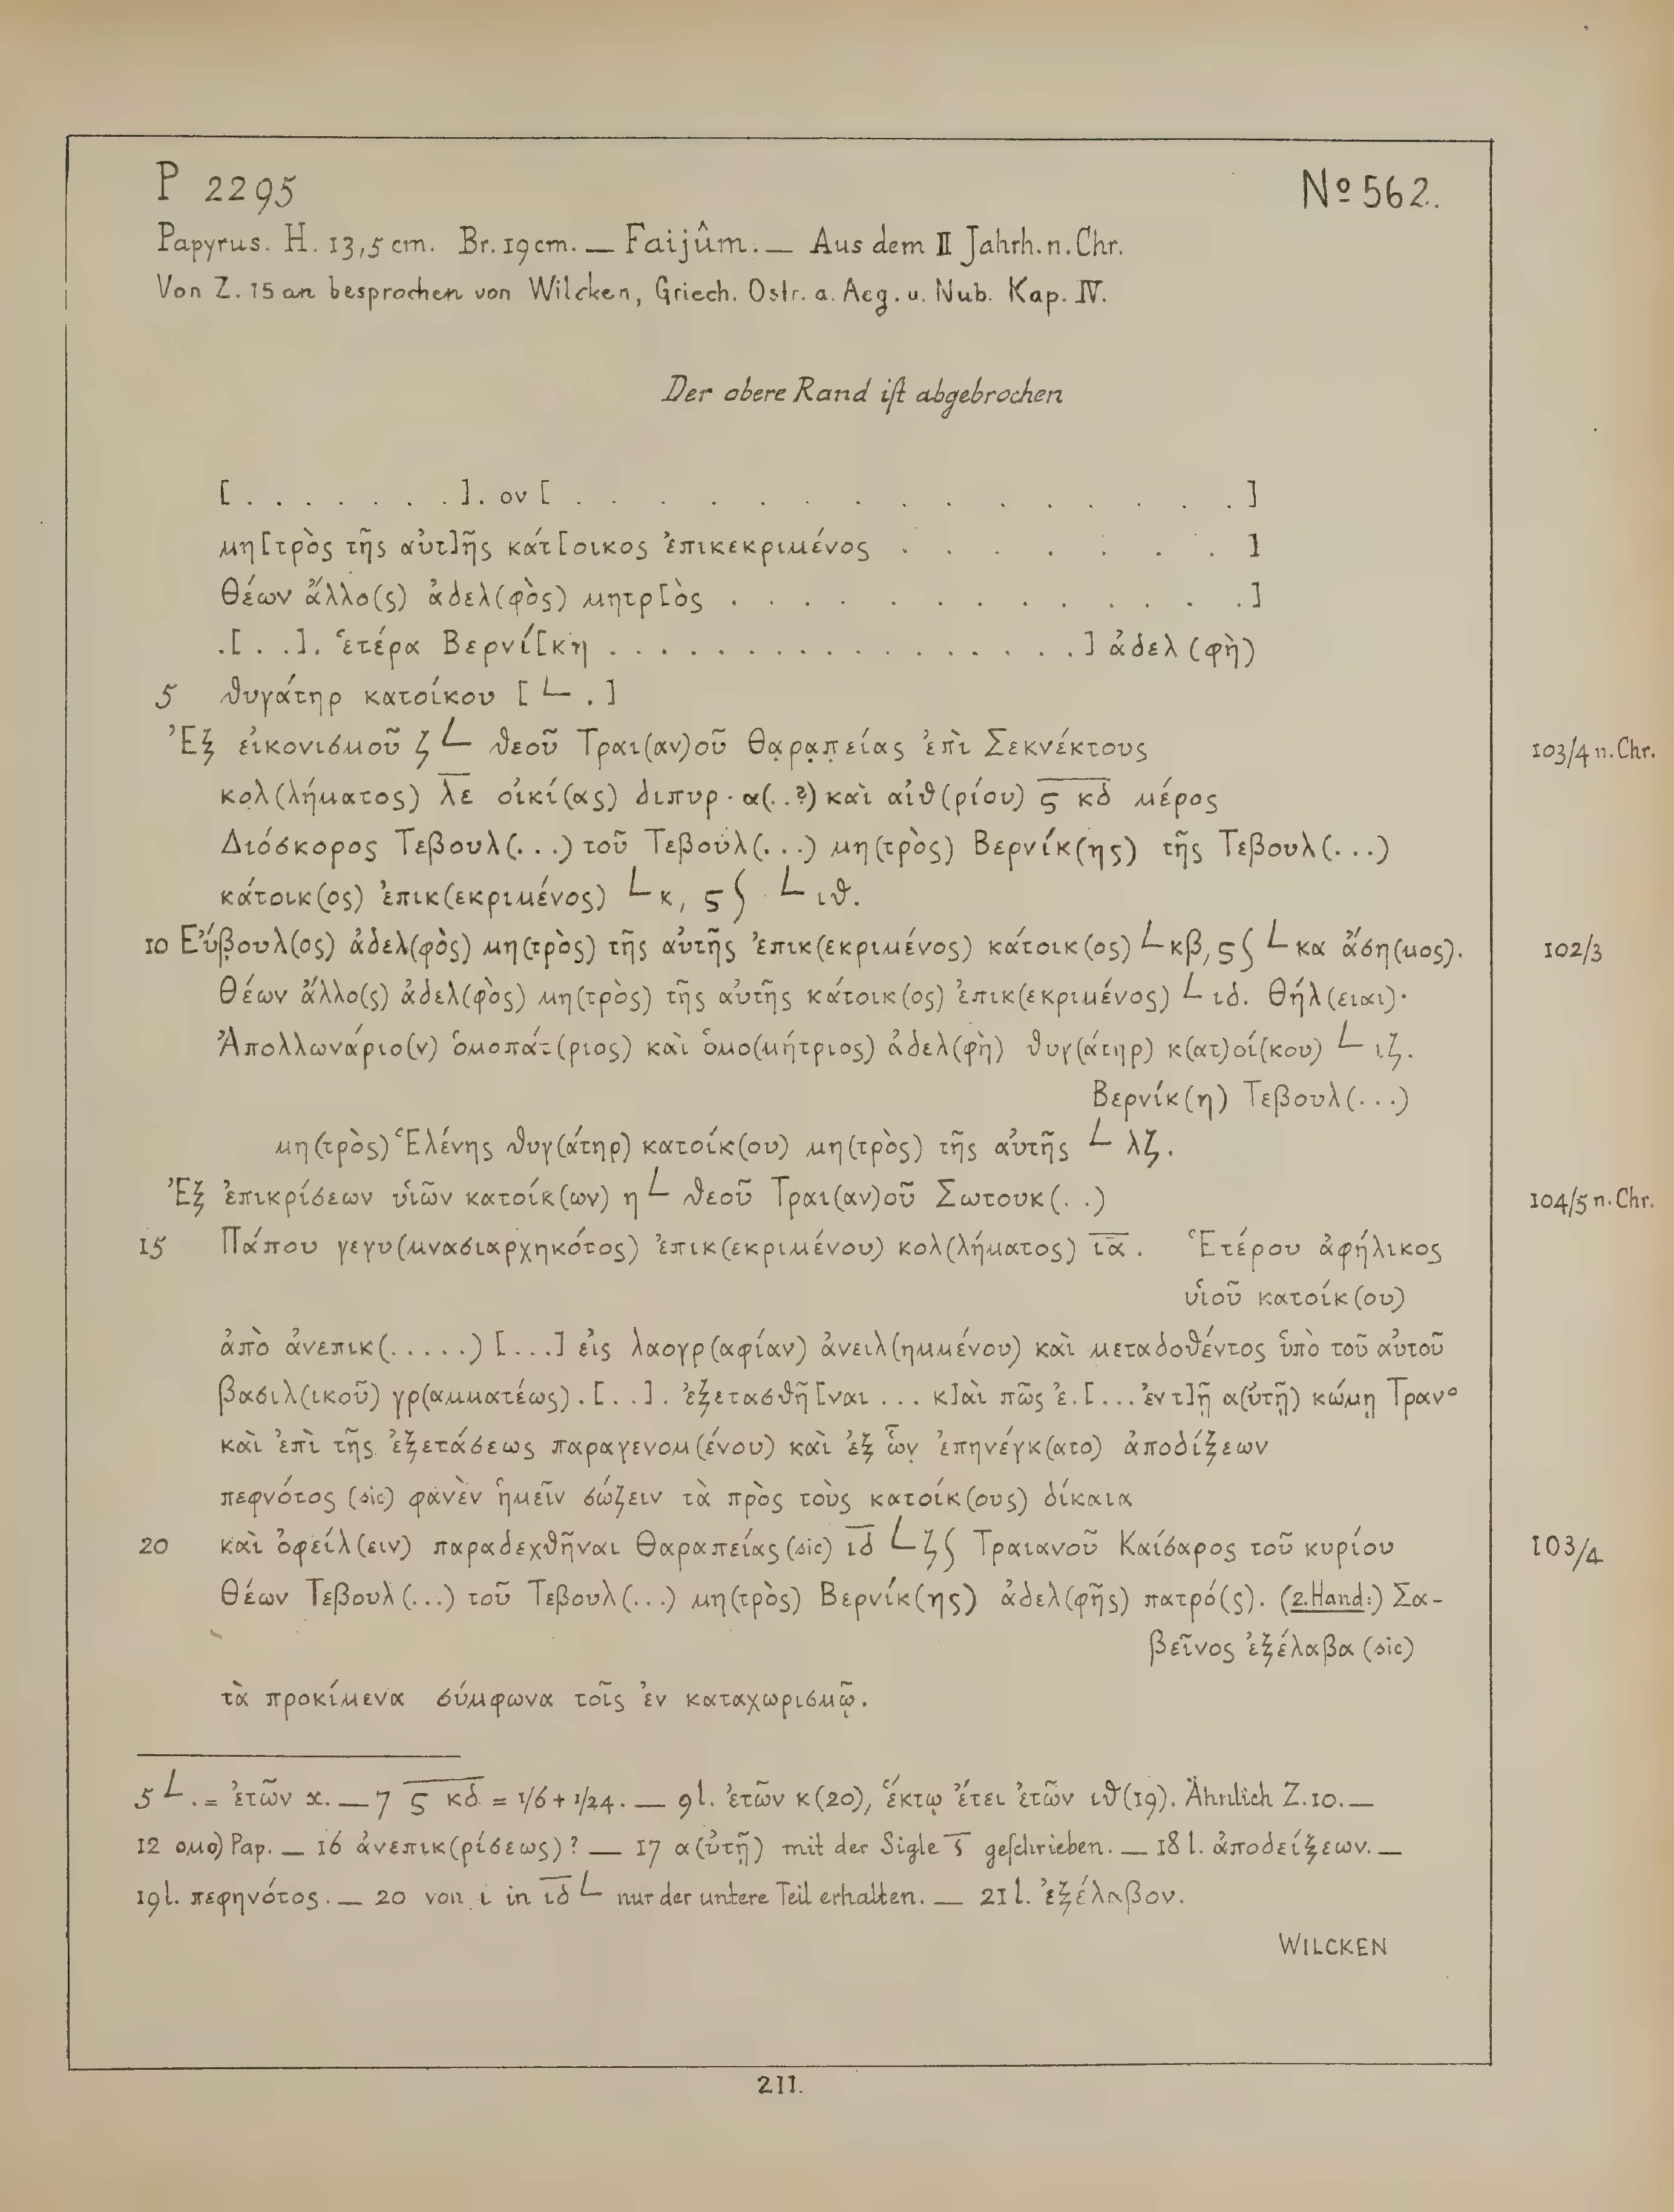 P 2295 Nº 562.
Papyrus. H. 13,5 cm. Br. 19 cm. — Faijûm. — Aus dem II Jahrh. n. Chr.
Von Z. 15 an besprochen von Wilcken, Griech. Ostr. a. Aeg. u. Nub. Kap. IV.
Der obere Rand iſt abgebrochen
[ . . . . . . . ] . ον [ . . . . . . . . . . . . . . ]
μη[τρὸς τῆς αὐτ]ῆς κάτ[οικος ἐπικεκριμένος . . . . . . . ]
Θέων ἄλλο(ς) ἀδελ(φὸς) μητρ[ὸς . . . . . . . . . . . . ]
.[ . . .]. ἑτέρα Βερνί[κη . . . . . . . . . . . . . . . . . ] ἀδελ(φὴ)
5 θυγάτηρ κατοίκου [ L . ]
Ἐξ εἰκονισμοῦ ζ L θεοῦ Τραι(αν)οῦ Θα̣ρα̣π̣είας ἐπὶ Σεκνέκτους 103/4 n. Chr.
κολ(λήματος) λ̅ε̅ οἰκί(ας) διπυρ . α(. . ?) καὶ αἰθ(ρίου) ϛ̅ κ̅δ̅ μέρος
Διόσκορος Τεβουλ(. . .) τοῦ Τεβούλ(. . .) μη(τρὸς) Βερνίκ(ης) τῆς Τεβουλ(. . .)
κάτοικ(ος) ἐπικ(εκριμένος) L κ, ϛ ʃ L ιθ.
10 Εὔβ̣ουλ(ος) ἀδελ(φὸς) μη(τρὸς) τῆς αὐτῆς ἐπικ(εκριμένος) κάτοικ(ος) L κβ, ϛ ʃ L κα ἄση(μος). 102/3
Θέων ἄλλο(ς) ἀδελ(φὸς) μη(τρὸς) τῆς αὐτῆς κάτοικ(ος) ἐπικ(εκριμένος) L ιδ. Θήλ(ειαι)·
Ἀπολλωνάριο(ν) ὁμοπάτ(ριος) καὶ ὁμο(μήτριος) ἀδελ(φὴ) θυγ(άτηρ) κ(ατ)οί(κου) L ιζ.
Βερνίκ(η) Τεβουλ(. . .)
μη(τρὸς) Ἑλένης θυγ(άτηρ) κατοίκ(ου) μη(τρὸς) τῆς αὐτῆς L λζ.
Ἐξ ἐπικρίσεων υἱῶν κατοίκ(ων) η L θεοῦ Τραι(αν)οῦ Σωτουκ(. .) 104/5 n. Chr.
15 Πάπου γεγυ(μνασιαρχηκότος) ἐπικ(εκριμένου) κολ(λήματος) ι̅α̅. Ἑτέρου ἀφήλικος
υἱοῦ κατοίκ(ου)
ἀπὸ ἀνεπικ(. . . . .) [. . .] εἰς λαογρ(αφίαν) ἀνειλ(ημμένου) καὶ μεταδοθέντος ὑπὸ τοῦ αὐτοῦ
βασιλ(ικοῦ) γρ(αμματέως) . [. . .] . ἐξετασθῆ[ναι . . . κ]αὶ πῶς ἐ.[ . . . ἐν τ]ῇ α(ὐτῇ) κώμῃ Τρανº
καὶ ἐπὶ τῆς ἐξετάσεως παραγενομ(ένου) καὶ ἐξ ὧν ἐπηνέγκ(ατο) ἀποδίξεων
πεφνότος (sic) φανὲν ἡμεῖν σώζειν τὰ πρὸς τοὺς κατοίκ(ους) δίκαια
20 καὶ ὀφείλ(ειν) παραδεχθῆναι Θαραπείας (sic) ι̅δ̅ L ζ ʃ Τραιανοῦ Καίσαρος τοῦ κυρίου 103/4
Θέων Τεβουλ(. . .) τοῦ Τεβουλ(. . .) μη(τρὸς) Βερνίκ(ης) ἀδελ(φῆς) πατρό(ς). (2. Hand:) Σα-
βεῖνος ἐξέλαβα (sic)
τὰ προκίμενα σύμφωνα τοῖς ἐν καταχωρισμῷ.
5 L . = ἐτῶν x. — 7 ϛ̅ κ̅δ̅ = 1/6 + 1/24. — 9 l. ἐτῶν κ (20), ἕκτῳ ἔτει ἐτῶν ιθ (19). Ähnlich Z. 10. —
12 ομο) Pap. — 16 ἀνεπικ(ρίσεως)? — 17 α(ὐτῇ) mit der Sigle ϛ̅ geſchrieben. — 18 l. ἀποδείξεων. —
19 l. πεφηνότος. — 20 von ι in ι̅δ̅ L nur der untere Teil erhalten. — 21 l. ἐξέλαβον.
WILCKEN
211.